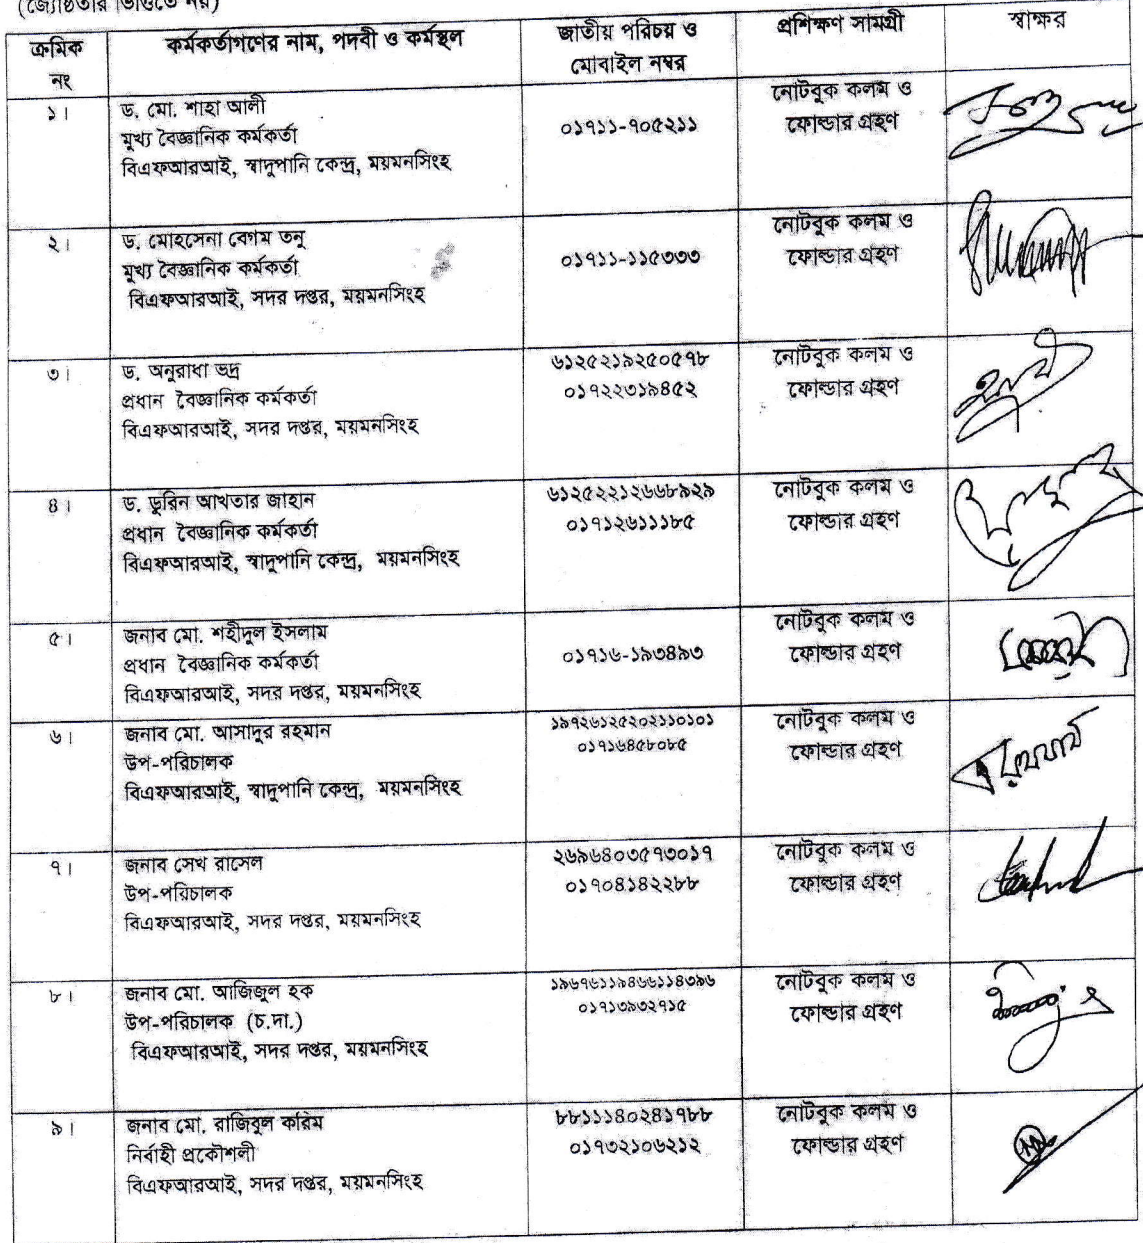 (জ্যেষ্ঠতার ভিত্তিতে নয়)
ক্রমিক নং
কর্মকর্তাগণের নাম, পদবী ও কর্মস্থল
জাতীয় পরিচয় ও মোবাইল নম্বর
প্রশিক্ষণ সামগ্রী
স্বাক্ষর
১।
ড. মো. শাহা আলী
মুখ্য বৈজ্ঞানিক কর্মকর্তা
বিএফআরআই, স্বাদুপানি কেন্দ্র, ময়মনসিংহ
০১৭১১-৭০৫২১১
নোটবুক কলম ও
ফোল্ডার গ্রহণ
২।
ড. মোহসেনা বেগম তনু
মুখ্য বৈজ্ঞানিক কর্মকর্তা
বিএফআরআই, সদর দপ্তর, ময়মনসিংহ
০১৭১১-১১৫৩৩৩
নোটবুক কলম ও
ফোল্ডার গ্রহণ
৩।
ড. অনুরাধা ভদ্র
প্রধান বৈজ্ঞানিক কর্মকর্তা
বিএফআরআই, সদর দপ্তর, ময়মনসিংহ
৬১২৫২১৯২৫০৫৭৮
০১৭২২৩১৯৪৫২
নোটবুক কলম ও
ফোল্ডার গ্রহণ
৪।
ড. ডুরিন আখতার জাহান
প্রধান বৈজ্ঞানিক কর্মকর্তা
বিএফআরআই, স্বাদুপানি কেন্দ্র, ময়মনসিংহ
৬১২৫২২১২৬৬৮৯২৯
০১৭১২৬১১১৮৫
নোটবুক কলম ও
ফোল্ডার গ্রহণ
৫।
জনাব মো. শহীদুল ইসলাম
প্রধান বৈজ্ঞানিক কর্মকর্তা
বিএফআরআই, সদর দপ্তর, ময়মনসিংহ
০১৭১৬-১৯৩৪৯৩
নোটবুক কলম ও
ফোল্ডার গ্রহণ
৬।
জনাব মো. আসাদুর রহমান
উপ-পরিচালক
বিএফআরআই, স্বাদুপানি কেন্দ্র, ময়মনসিংহ
১৯৭২৬১২৫২০২১১০১০১
০১৭১৬৪৫৮০৮৫
নোটবুক কলম ও
ফোল্ডার গ্রহণ
৭।
জনাব সেখ রাসেল
উপ-পরিচালক
বিএফআরআই, সদর দপ্তর, ময়মনসিংহ
২৬৯৬৪০৩৫৭৩০১৭
০১৭০৪১৪২২৮৮
নোটবুক কলম ও
ফোল্ডার গ্রহণ
৮।
জনাব মো. আজিজুল হক
উপ-পরিচালক (চ.দা.)
বিএফআরআই, সদর দপ্তর, ময়মনসিংহ
১৯৬৭৬১১৯৪৬৬১১৪৩৯৬
০১৭১৩৯৩২৭১৫
নোটবুক কলম ও
ফোল্ডার গ্রহণ
৯।
জনাব মো. রাজিবুল করিম
নির্বাহী প্রকৌশলী
বিএফআরআই, সদর দপ্তর, ময়মনসিংহ
৮৮১১১৪০২৪১৭৮৮
০১৭৩২১০৬২১২
নোটবুক কলম ও
ফোল্ডার গ্রহণ